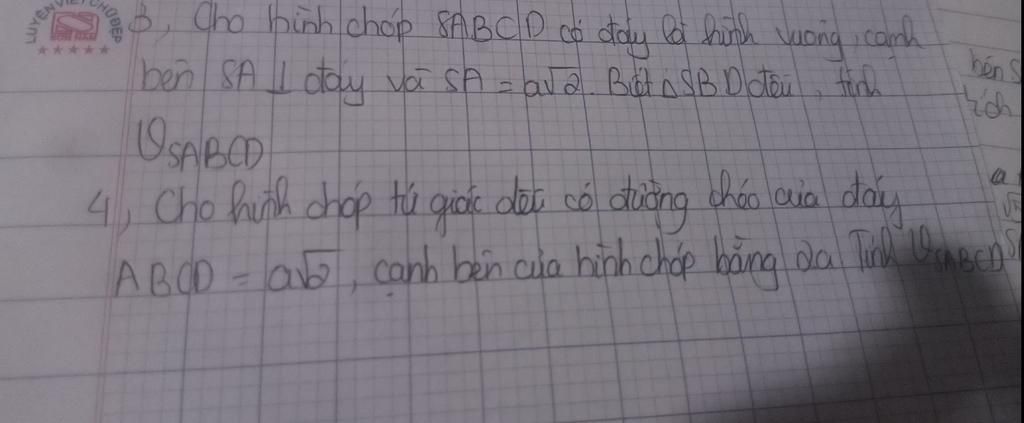 LUYỆN VIẾT CHỮ ĐẸP
3, Cho hình chóp SABCD có đáy là hình vuông, cạnh
bên SA ⊥ đáy và SA = a√2. Biết △SBD đều, tính
V_SABCD
4, Cho hình chóp tứ giác đều có đường chéo của đáy
ABCD = a√2, cạnh bên của hình chóp bằng 2a Tính V_SABCD
bên S
tích
a